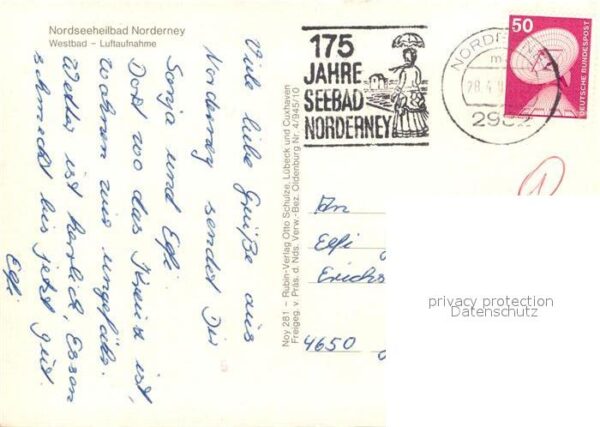 Nordseeheilbad Norderney
Westbad – Luftaufnahme
Viele liebe Grüße aus
Norderney sendet Dir
Sonja und Elfi.
Dort wo das Kreuz ist,
wohnen wir ungefähr.
Wetter ist herrlich, Essen
schmeckt bis jetzt gut.
Elfi
Noy 281 – Rubin-Verlag Otto Schulze, Lübeck und Cuxhaven
Freigeg. v. Präs. d. Nds. Verw.-Bez. Oldenburg Nr. 4/945/10
175
JAHRE
SEEBAD
NORDERNEY
NORDERNEY
m
28.4.
2982
50
DEUTSCHE BUNDESPOST
An
Elfi
Erichs
4650
privacy protection
Datenschutz